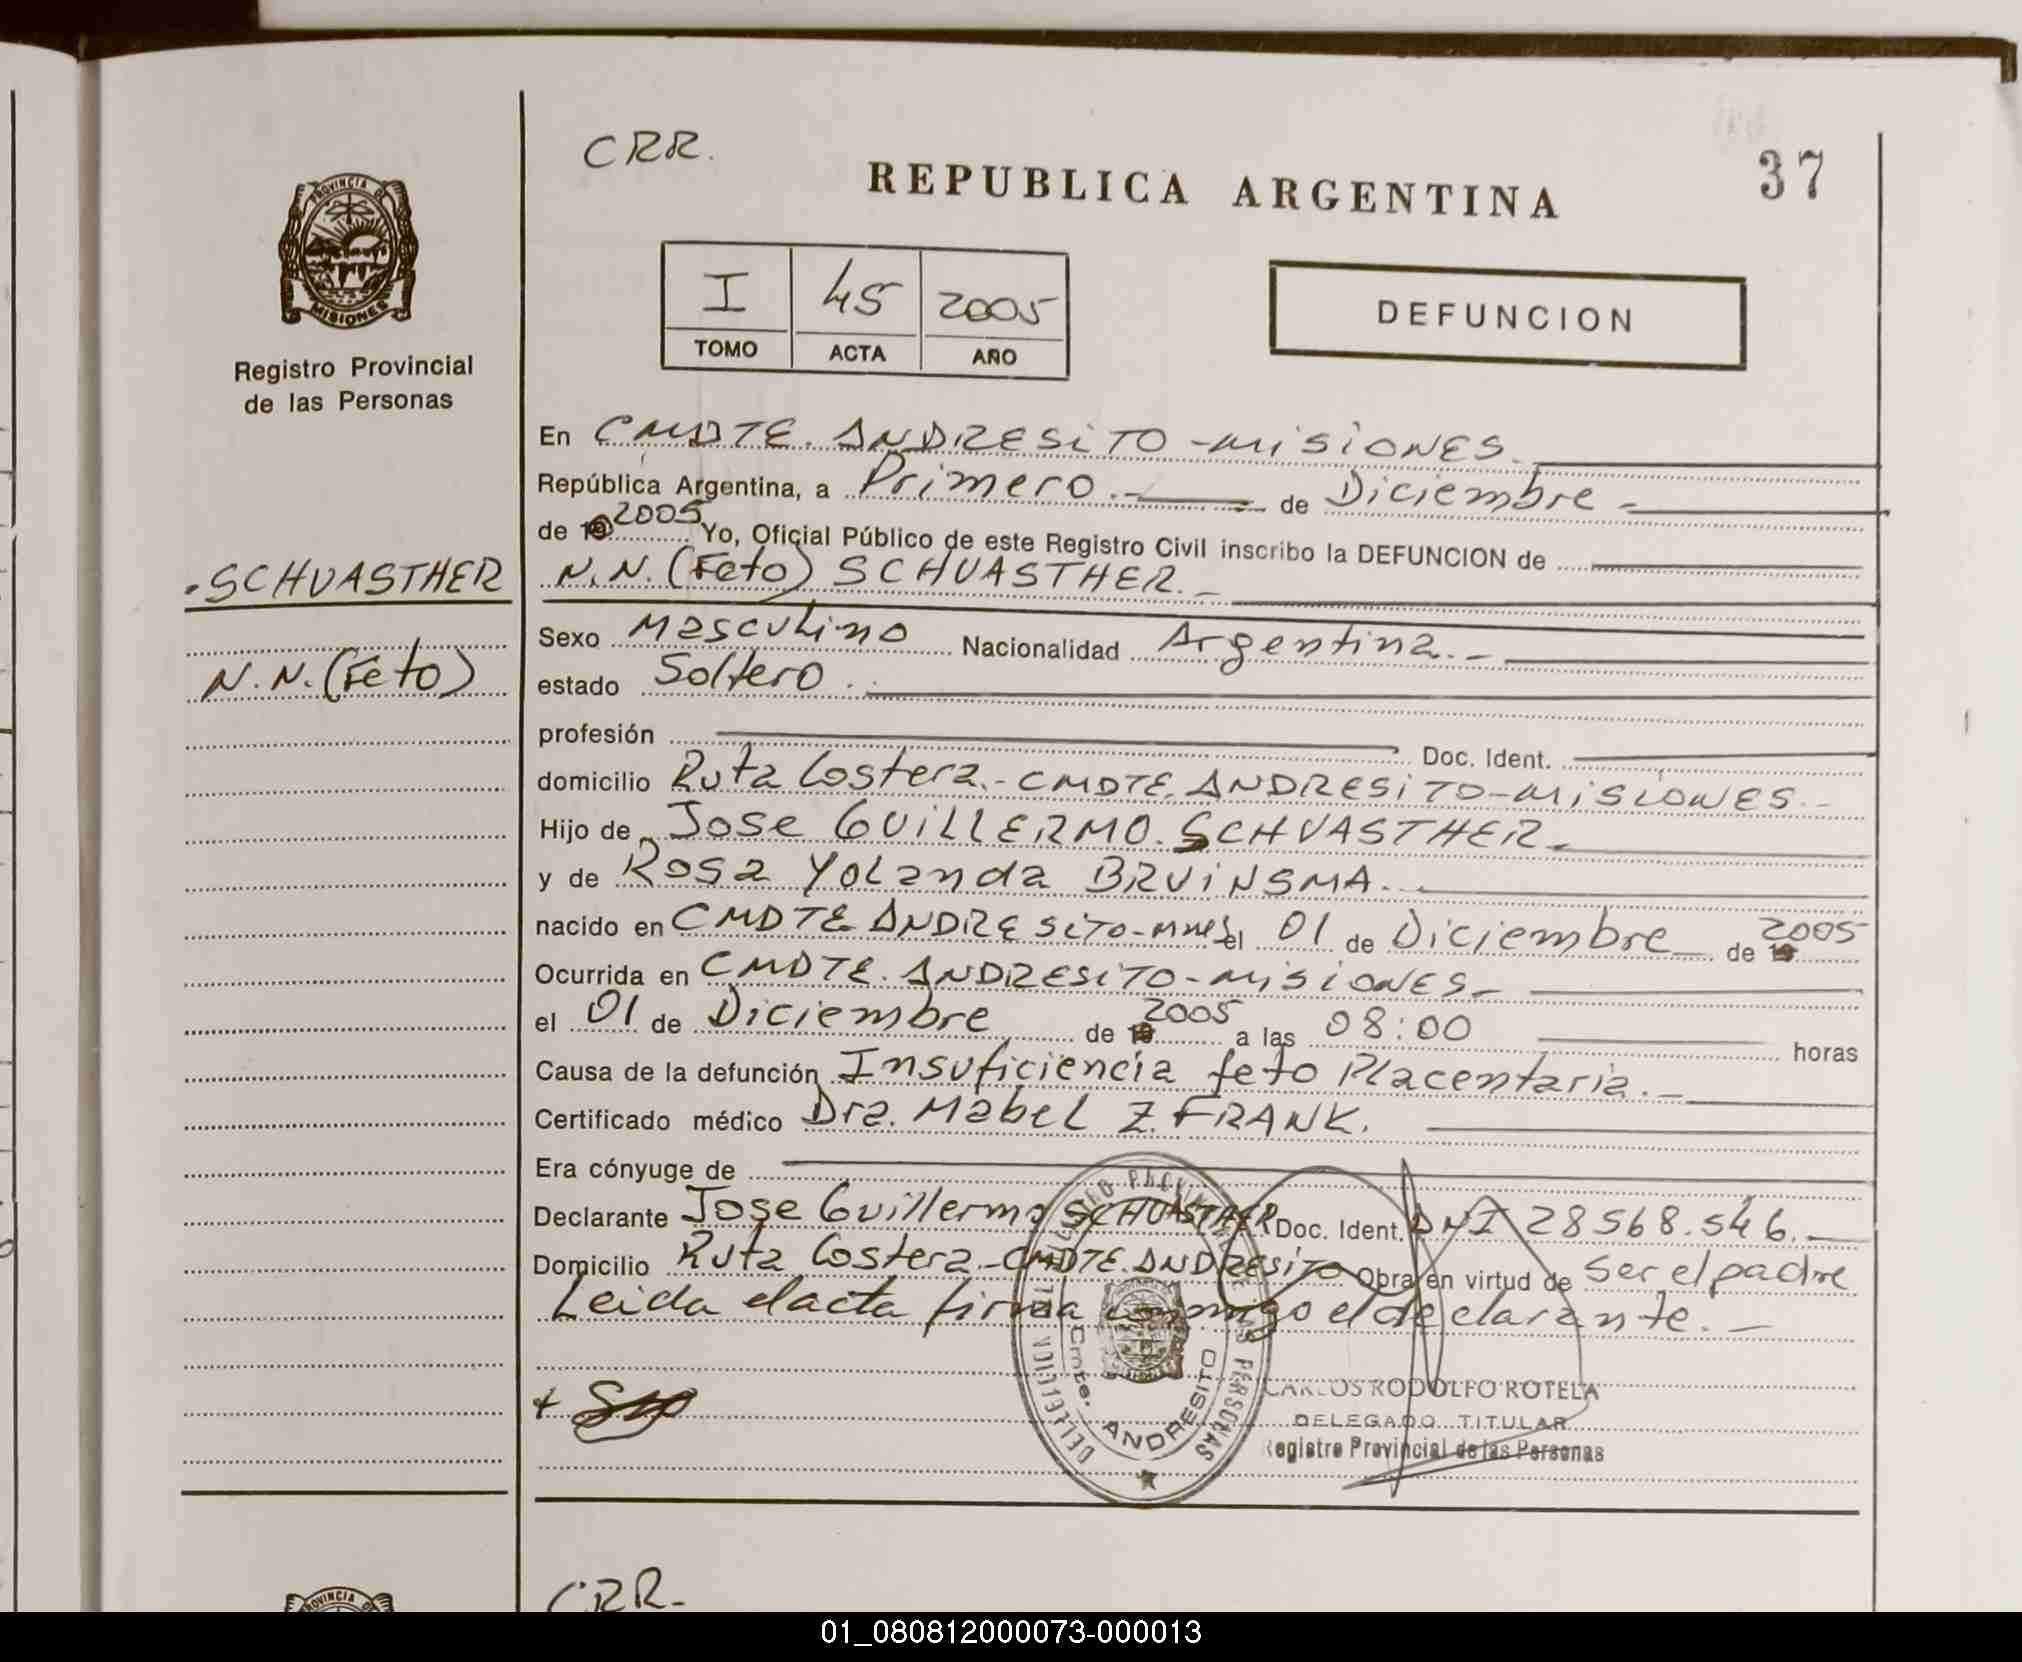 CRR.
REPUBLICA ARGENTINA
37
PROVINCIA DE
MISIONES
Registro Provincial
de las Personas
I 45 2005
TOMO ACTA AÑO
DEFUNCION
En CMDTE. ANDRESiTO - MiSiONES.
República Argentina, a Primero.- de Diciembre -
de 19 2005 Yo, Oficial Público de este Registro Civil inscribo la DEFUNCION de
N.N. (Feto) SCHUASTHER.-
SCHUASTHER
N.N. (Feto)
Sexo Masculino Nacionalidad Argentina.-
estado Soltero.
profesión Doc. Ident.
domicilio Ruta Costera.- CMDTE. ANDRESiTO - MiSiONES.-
Hijo de Jose GUiLLERMO. SCHUASTHER.
y de Rosa YOLanda BRUiNSMA.
nacido en CMDTE ANDRESiTO - Mnes el 01 de Diciembre de 19 2005
Ocurrida en CMDTE. ANDRESiTO - MiSiONES.-
el 01 de Diciembre de 19 2005 a las 08:00 horas
Causa de la defunción Insuficiencia feto Placentaria.-
Certificado médico Dra. Mabel Z. FRANK.
Era cónyuge de
Declarante Jose Guillermo SCHUASTHER Doc. Ident. DNI 28568.546.
Domicilio Ruta Costera - CMDTE. ANDRESiTO Obra en virtud de Ser el padre
Leida el acta firma conmigo el declarante.-
REGISTRO PROVINCIAL DE LAS PERSONAS
DELEGACION
Cmte. ANDRESITO
CARLOS RODOLFO ROTELA
DELEGADO TITULAR
Registro Provincial de las Personas
PROVINCIA DE
CRR.-
01_080812000073-000013